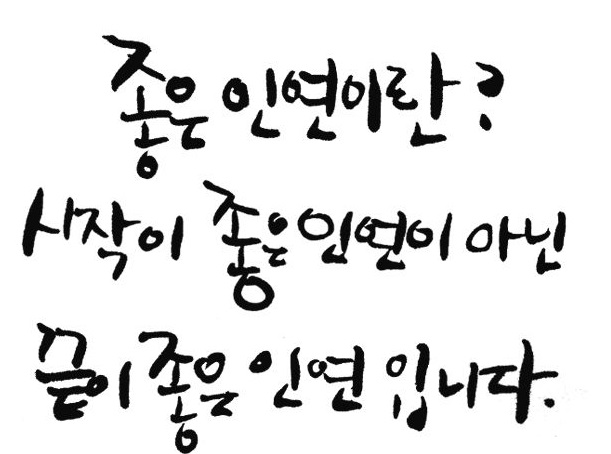 좋은 인연이란?
시작이 좋은 인연이 아닌
끝이 좋은 인연 입니다.